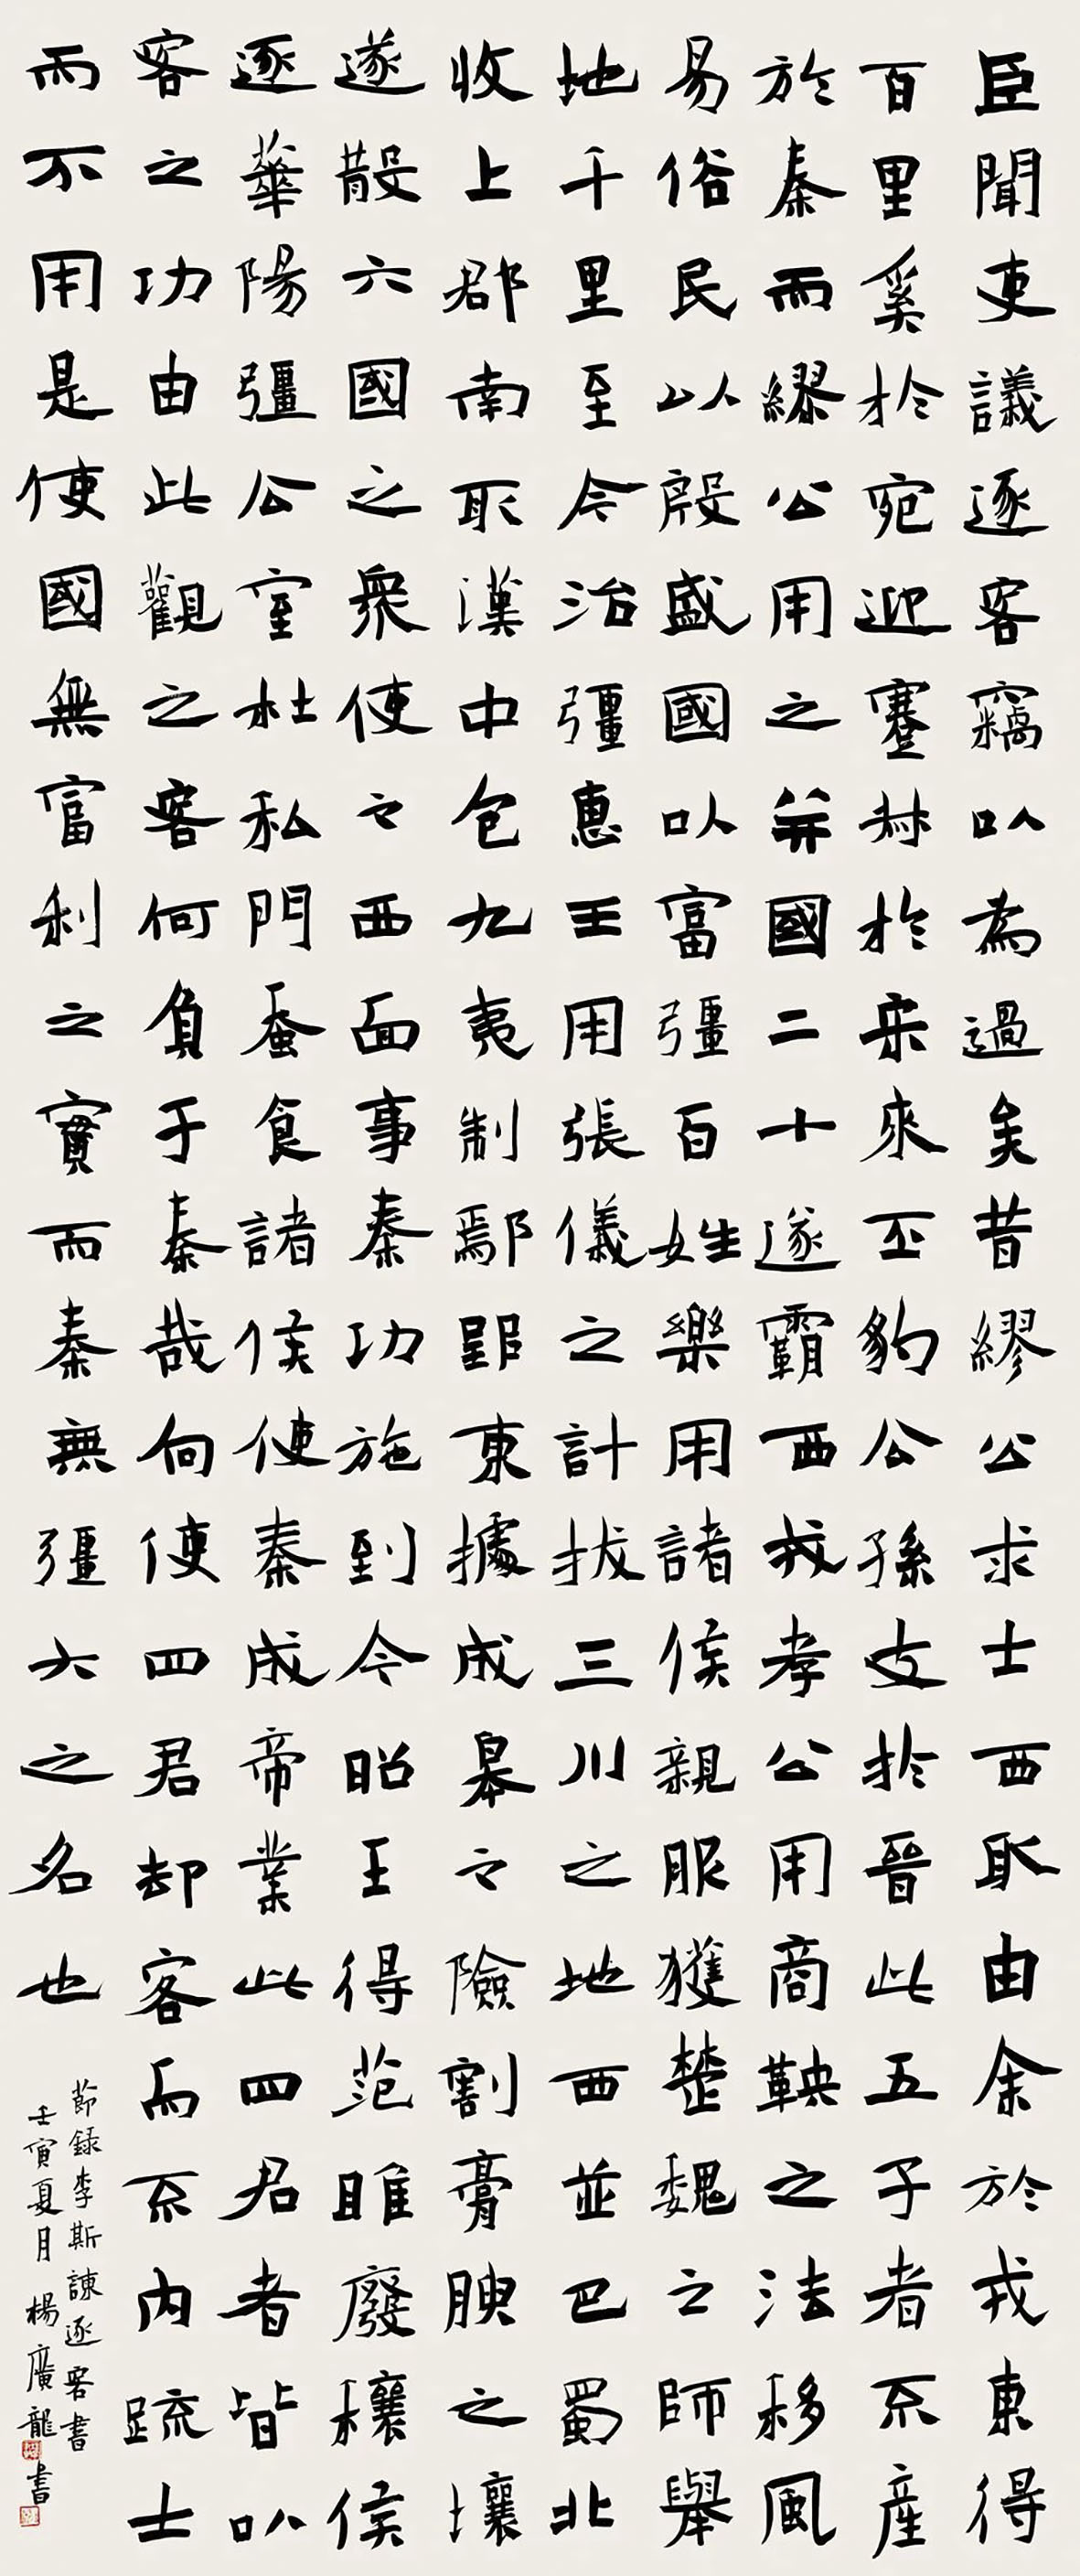 臣聞吏議逐客竊以為過矣昔繆公求士西取由余於戎東得
百里奚於宛迎蹇叔於宋來丕豹公孫支於晉此五子者不產
於秦而繆公用之并國二十遂霸西戎孝公用商鞅之法移風
易俗民以殷盛國以富彊百姓樂用諸侯親服獲楚魏之師舉
地千里至今治彊惠王用張儀之計拔三川之地西並巴蜀北
收上郡南取漢中包九夷制鄢郢東據成皋々險割膏腴之壤
遂散六國之眾使々西面事秦功施到今昭王得范雎廢穰侯
逐華陽彊公室杜私門蚕食諸侯使秦成帝業此四君者皆以
客之功由此觀之客何負于秦哉向使四君却客而不內疏士
而不用是使國無富利之實而秦無彊大之名也
節錄李斯諫逐客書
壬寅夏月楊廣龍書